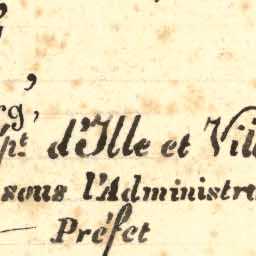 pt d'Ille et Vil
sous l'Administra
Préfet